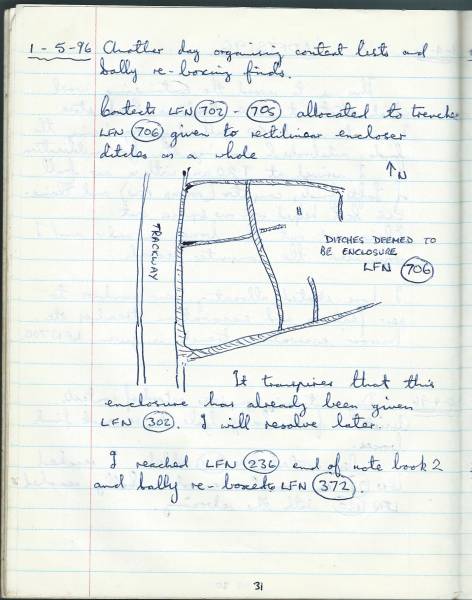 1-5-96 Another day organising context lists and
Sally re-boxing finds.
Contexts LFN 702 - 705 allocated to trenches
LFN 706 given to rectilinear encloser
ditches as a whole
↑N
TRACKWAY
DITCHES DEEMED TO
BE ENCLOSURE
LFN 706
It transpires that this
enclosure has already been given
LFN 302. I will resolve later.
I reached LFN 236 end of note book 2
and Sally re-boxed LFN 372.
31